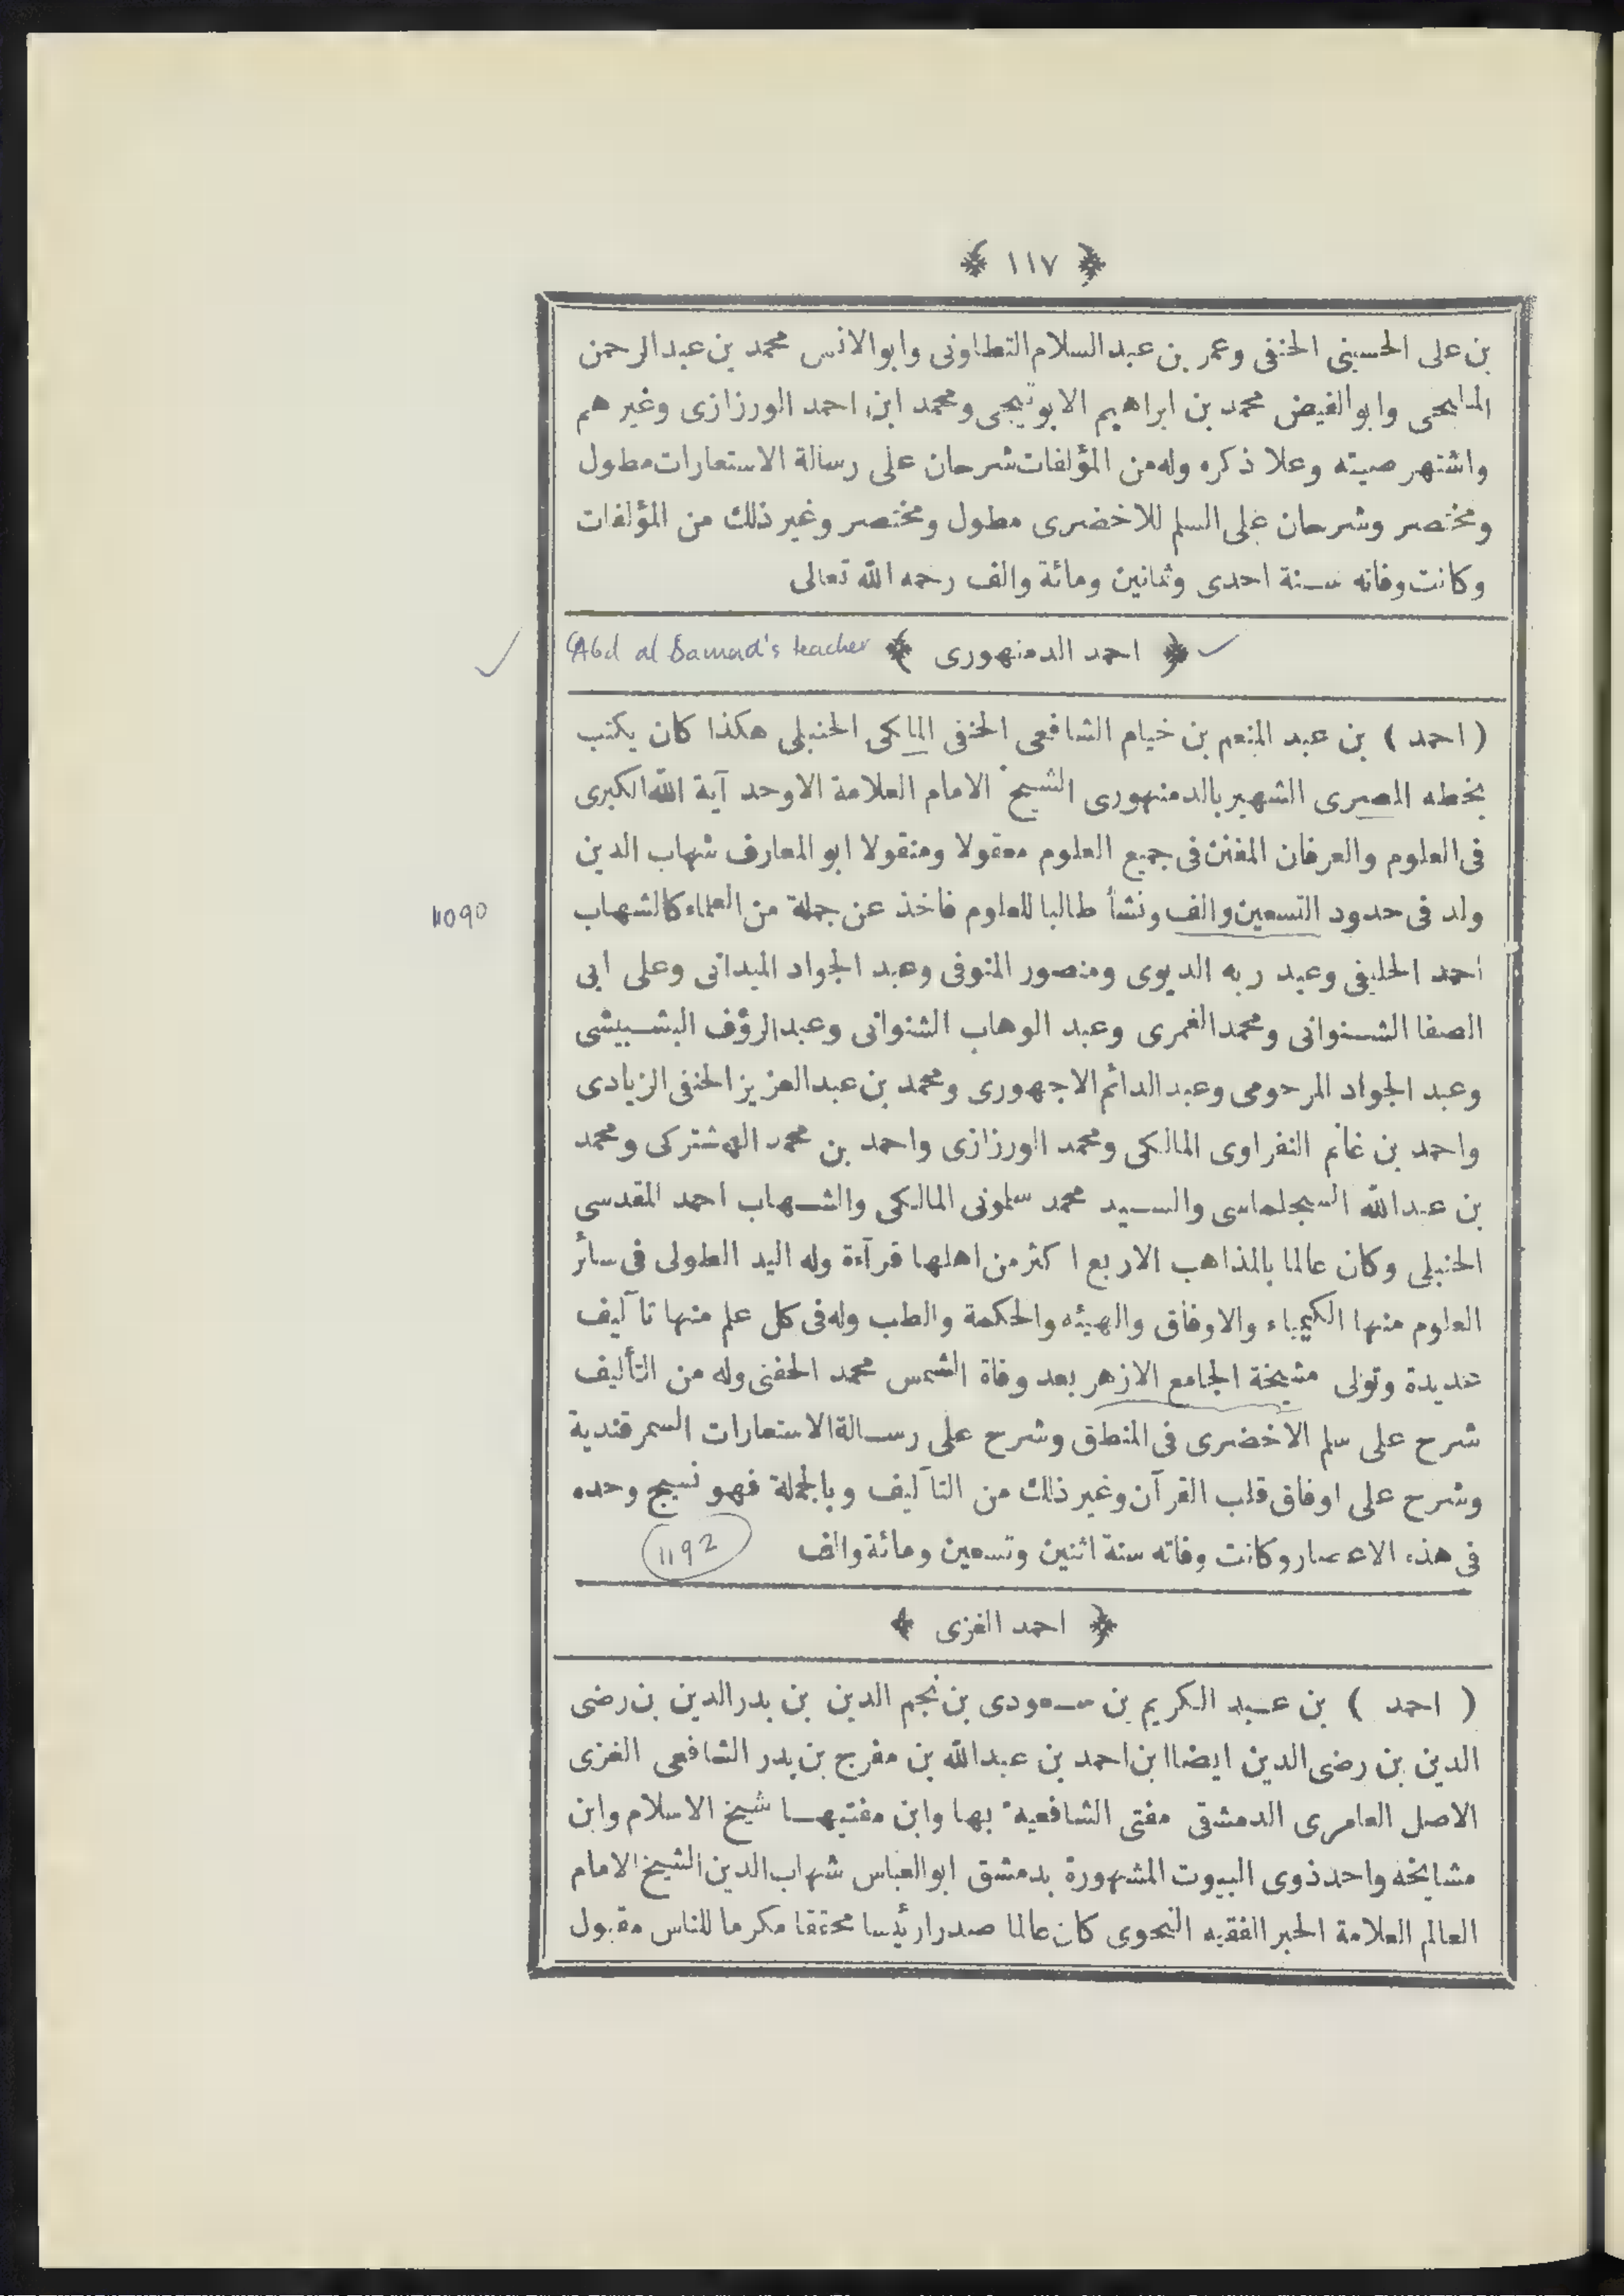 ﴿ ١١٧ ﴾
بن على الحسينى الحنفى وعمر بن عبدالسلام التطاونى وابوالانس محمد بن عبدالرحمن
المليجى وابوالفيض محمد بن ابراهيم الابوتيجى ومحمد ابن احمد الورزازى وغيرهم
واشتهر صيته وعلا ذكره وله من المؤلفات شرحان على رسالة الاستعارات مطول
ومختصر وشرحان على السلم للاخضرى مطول ومختصر وغير ذلك من المؤلفات
وكانت وفاته سنة احدى وثمانين ومائة والف رحمه الله تعالى
﴿ احمد الدمنهورى ﴾ ‘Abd al Samad's teacher
( احمد ) بن عبد المنعم بن خيام الشافعى الحنفى المالكى الحنبلى هكذا كان يكتب
بخطه المصرى الشهير بالدمنهورى الشيخ الامام العلامة الاوحد آية الله الكبرى
فى العلوم والعرفان المفنن فى جميع العلوم معقولا ومنقولا ابو المعارف شهاب الدين
ولد فى حدود التسعين والف ونشأ طالبا للعلوم فاخذ عن جملة من العلماء كالشهاب
1090
احمد الخليفى وعبد ربه الديوى ومنصور المنوفى وعبد الجواد الميدانى وعلى ابى
الصفا الشنوانى ومحمد الغمرى وعبد الوهاب الشنوانى وعبدالرؤف البشبيشى
وعبد الجواد المرحومى وعبد الدائم الاجهورى ومحمد بن عبدالعزيز الحنفى الزيادى
واحمد بن غانم النفراوى المالكى ومحمد الورزازى واحمد بن محمد الهشتركى ومحمد
بن عبدالله السجلماسى والسيد محمد سلمونى المالكى والشهاب احمد المقدسى
الحنبلى وكان عالما بالمذاهب الاربع اكثر من اهلها قرآءة وله اليد الطولى فى سائر
العلوم منها الكيمياء والاوفاق والهيئه والحكمة والطب وله فى كل علم منها تآليف
عديدة وتولى مشيخة الجامع الازهر بعد وفاة الشمس محمد الحفنى وله من التأليف
شرح على سلم الاخضرى فى المنطق وشرح على رسالة الاستعارات السمرقندية
وشرح على اوفاق قلب القرآن وغير ذلك من التآليف وبالجملة فهو نسيج وحده
فى هذه الاعصار وكانت وفاته سنة اثنين وتسعين ومائة والف 1192
﴿ احمد الغزى ﴾
( احمد ) بن عبد الكريم بن سعودى بن نجم الدين بن بدرالدين بن رضى
الدين بن رضى الدين ايضا ابن احمد بن عبدالله بن مفرج بن بدر الشافعى الغزى
الاصل العامرى الدمشقى مفتى الشافعية بها وابن مفتيها شيخ الاسلام وابن
مشايخه واحد ذوى البيوت المشهورة بدمشق ابوالعباس شهاب الدين الشيخ الامام
العالم العلامة الحبر الفقيه النحوى كان عالما صدرا رئيسا محتقا مكرما للناس مقبول